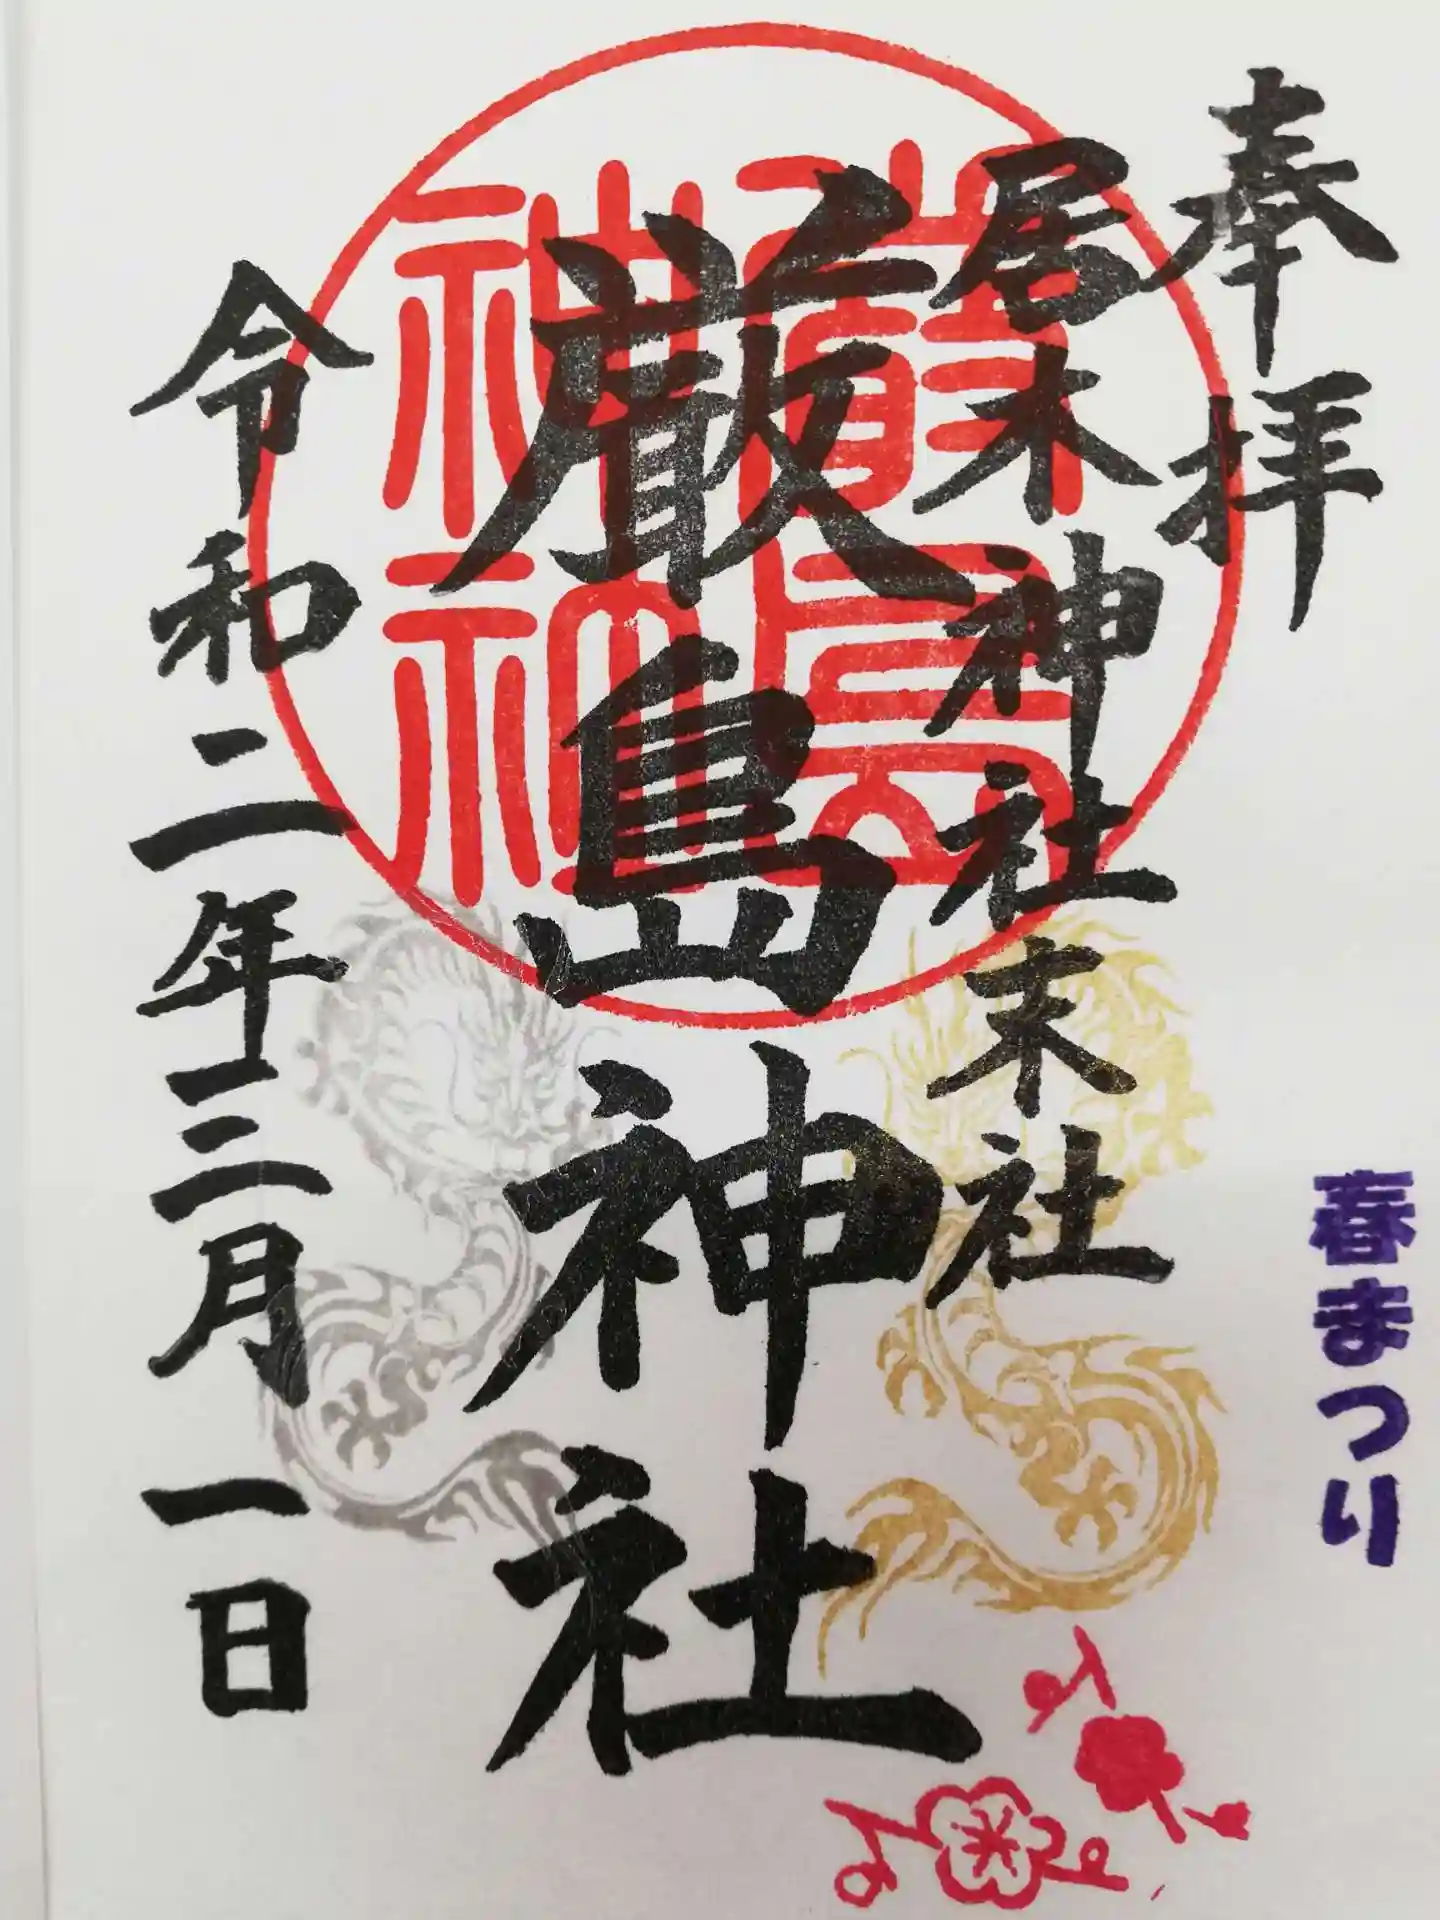 奉拝
居木神社末社
厳島神社
令和二年三月一日
春まつり
嚴島神社